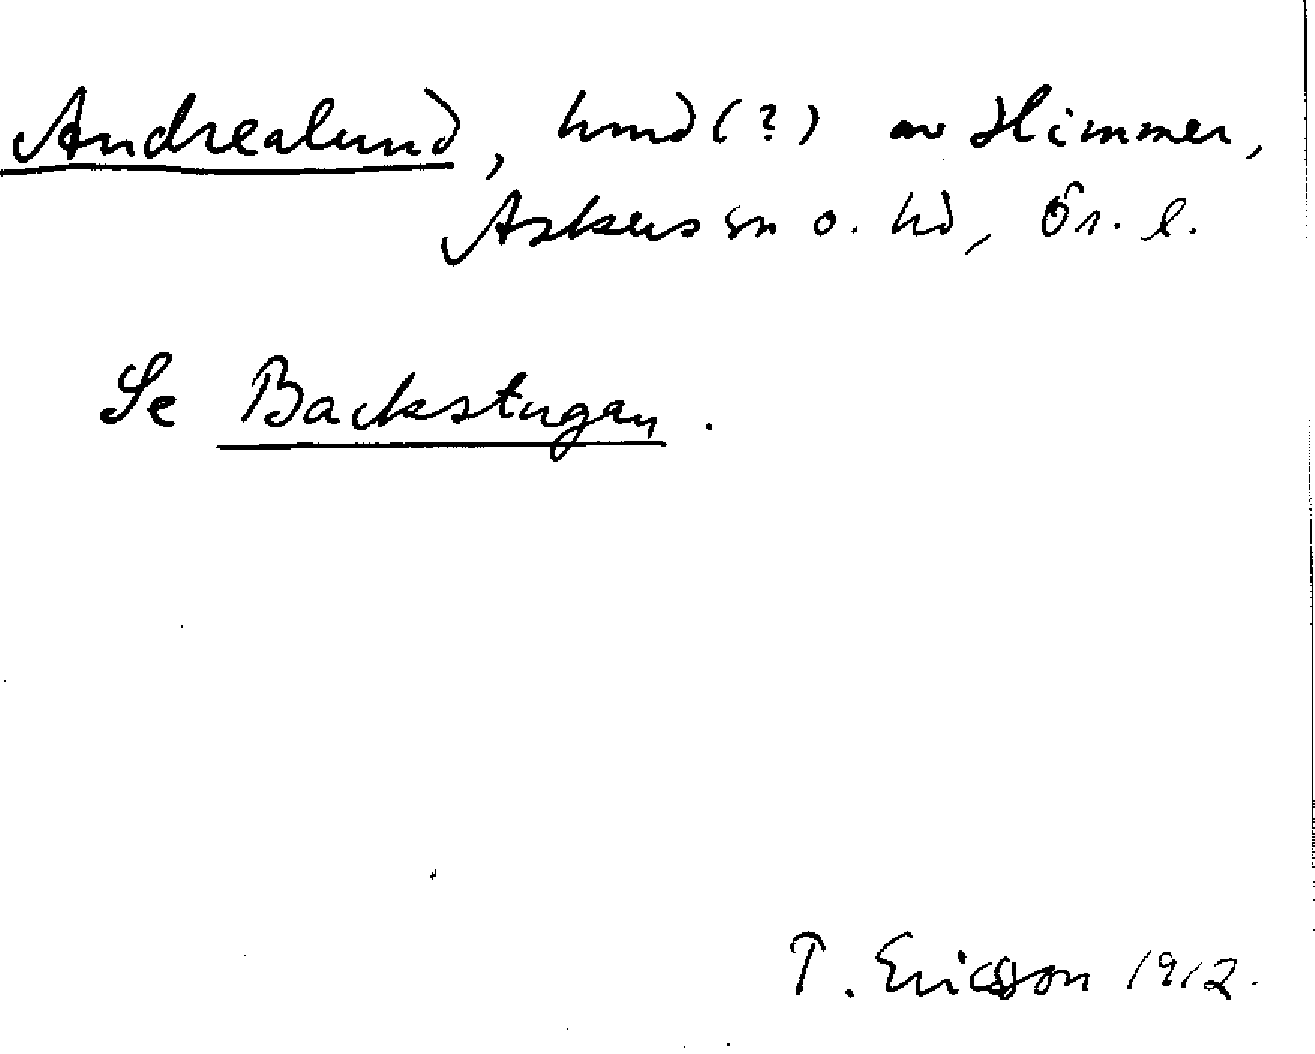 Andrealund, hmd (?) av Himmer,
Askers sn o. hd, Ör. l.
Se Backstugan.
T. Ericsson 1912.